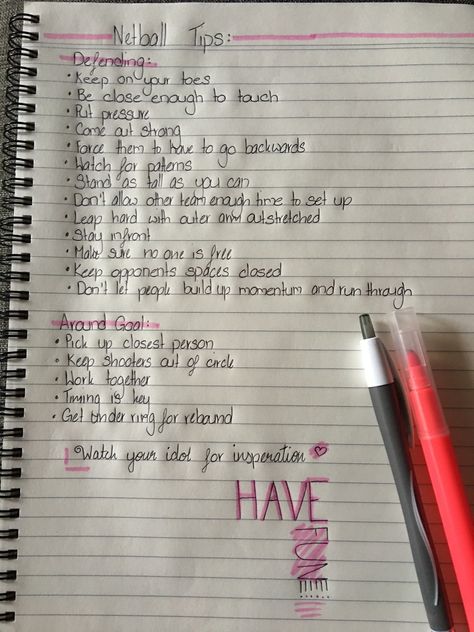 Netball Tips:
Defending:
• Keep on your toes
• Be close enough to touch
• Put pressure
• Come out strong
• Force them to have to go backwards
• Watch for patterns
• Stand as tall as you can
• Don't allow other team enough time to set up
• Leap hard with outer arm outstretched
• Stay infront
• Make sure no one is free
• Keep opponents spaces closed
• Don't let people build up momentum and run through
Around Goal:
• Pick up closest person
• Keep shooters out of circle
• Work together
• Timing is key
• Get under ring for rebound
Watch your idol for insperation ♡
HAVE
FUN!!!!